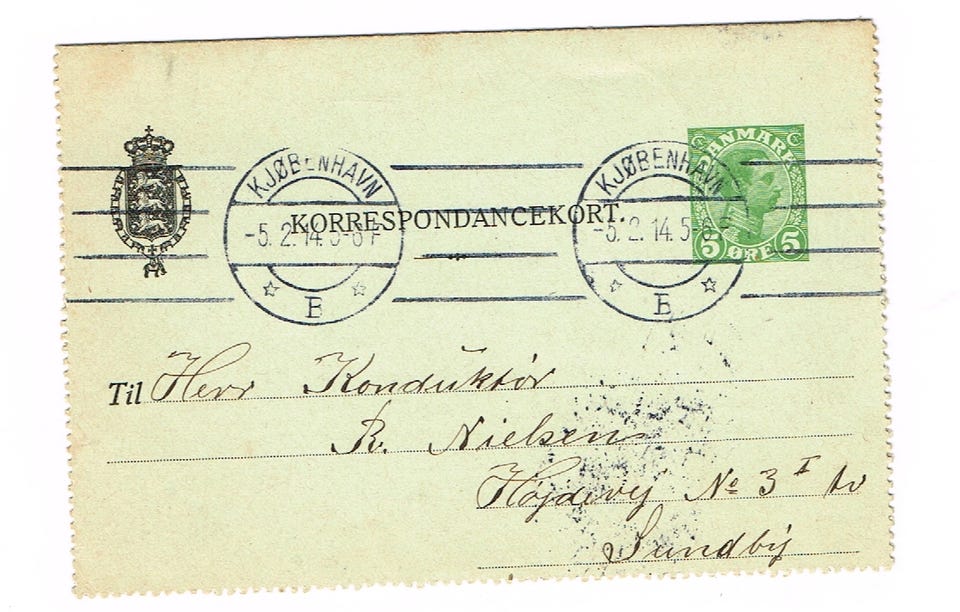 DANMARK
KJØBENHAVN
KJØBENHAVN
KORRESPONDANCEKORT.
-5. 2. 14. 5-6 F
-5. 2. 14. 5-6 F
5 ØRE 5
B
B
Til Herr Konduktør
R. Nielsen
Højdevej No 3 I tv
Sundby